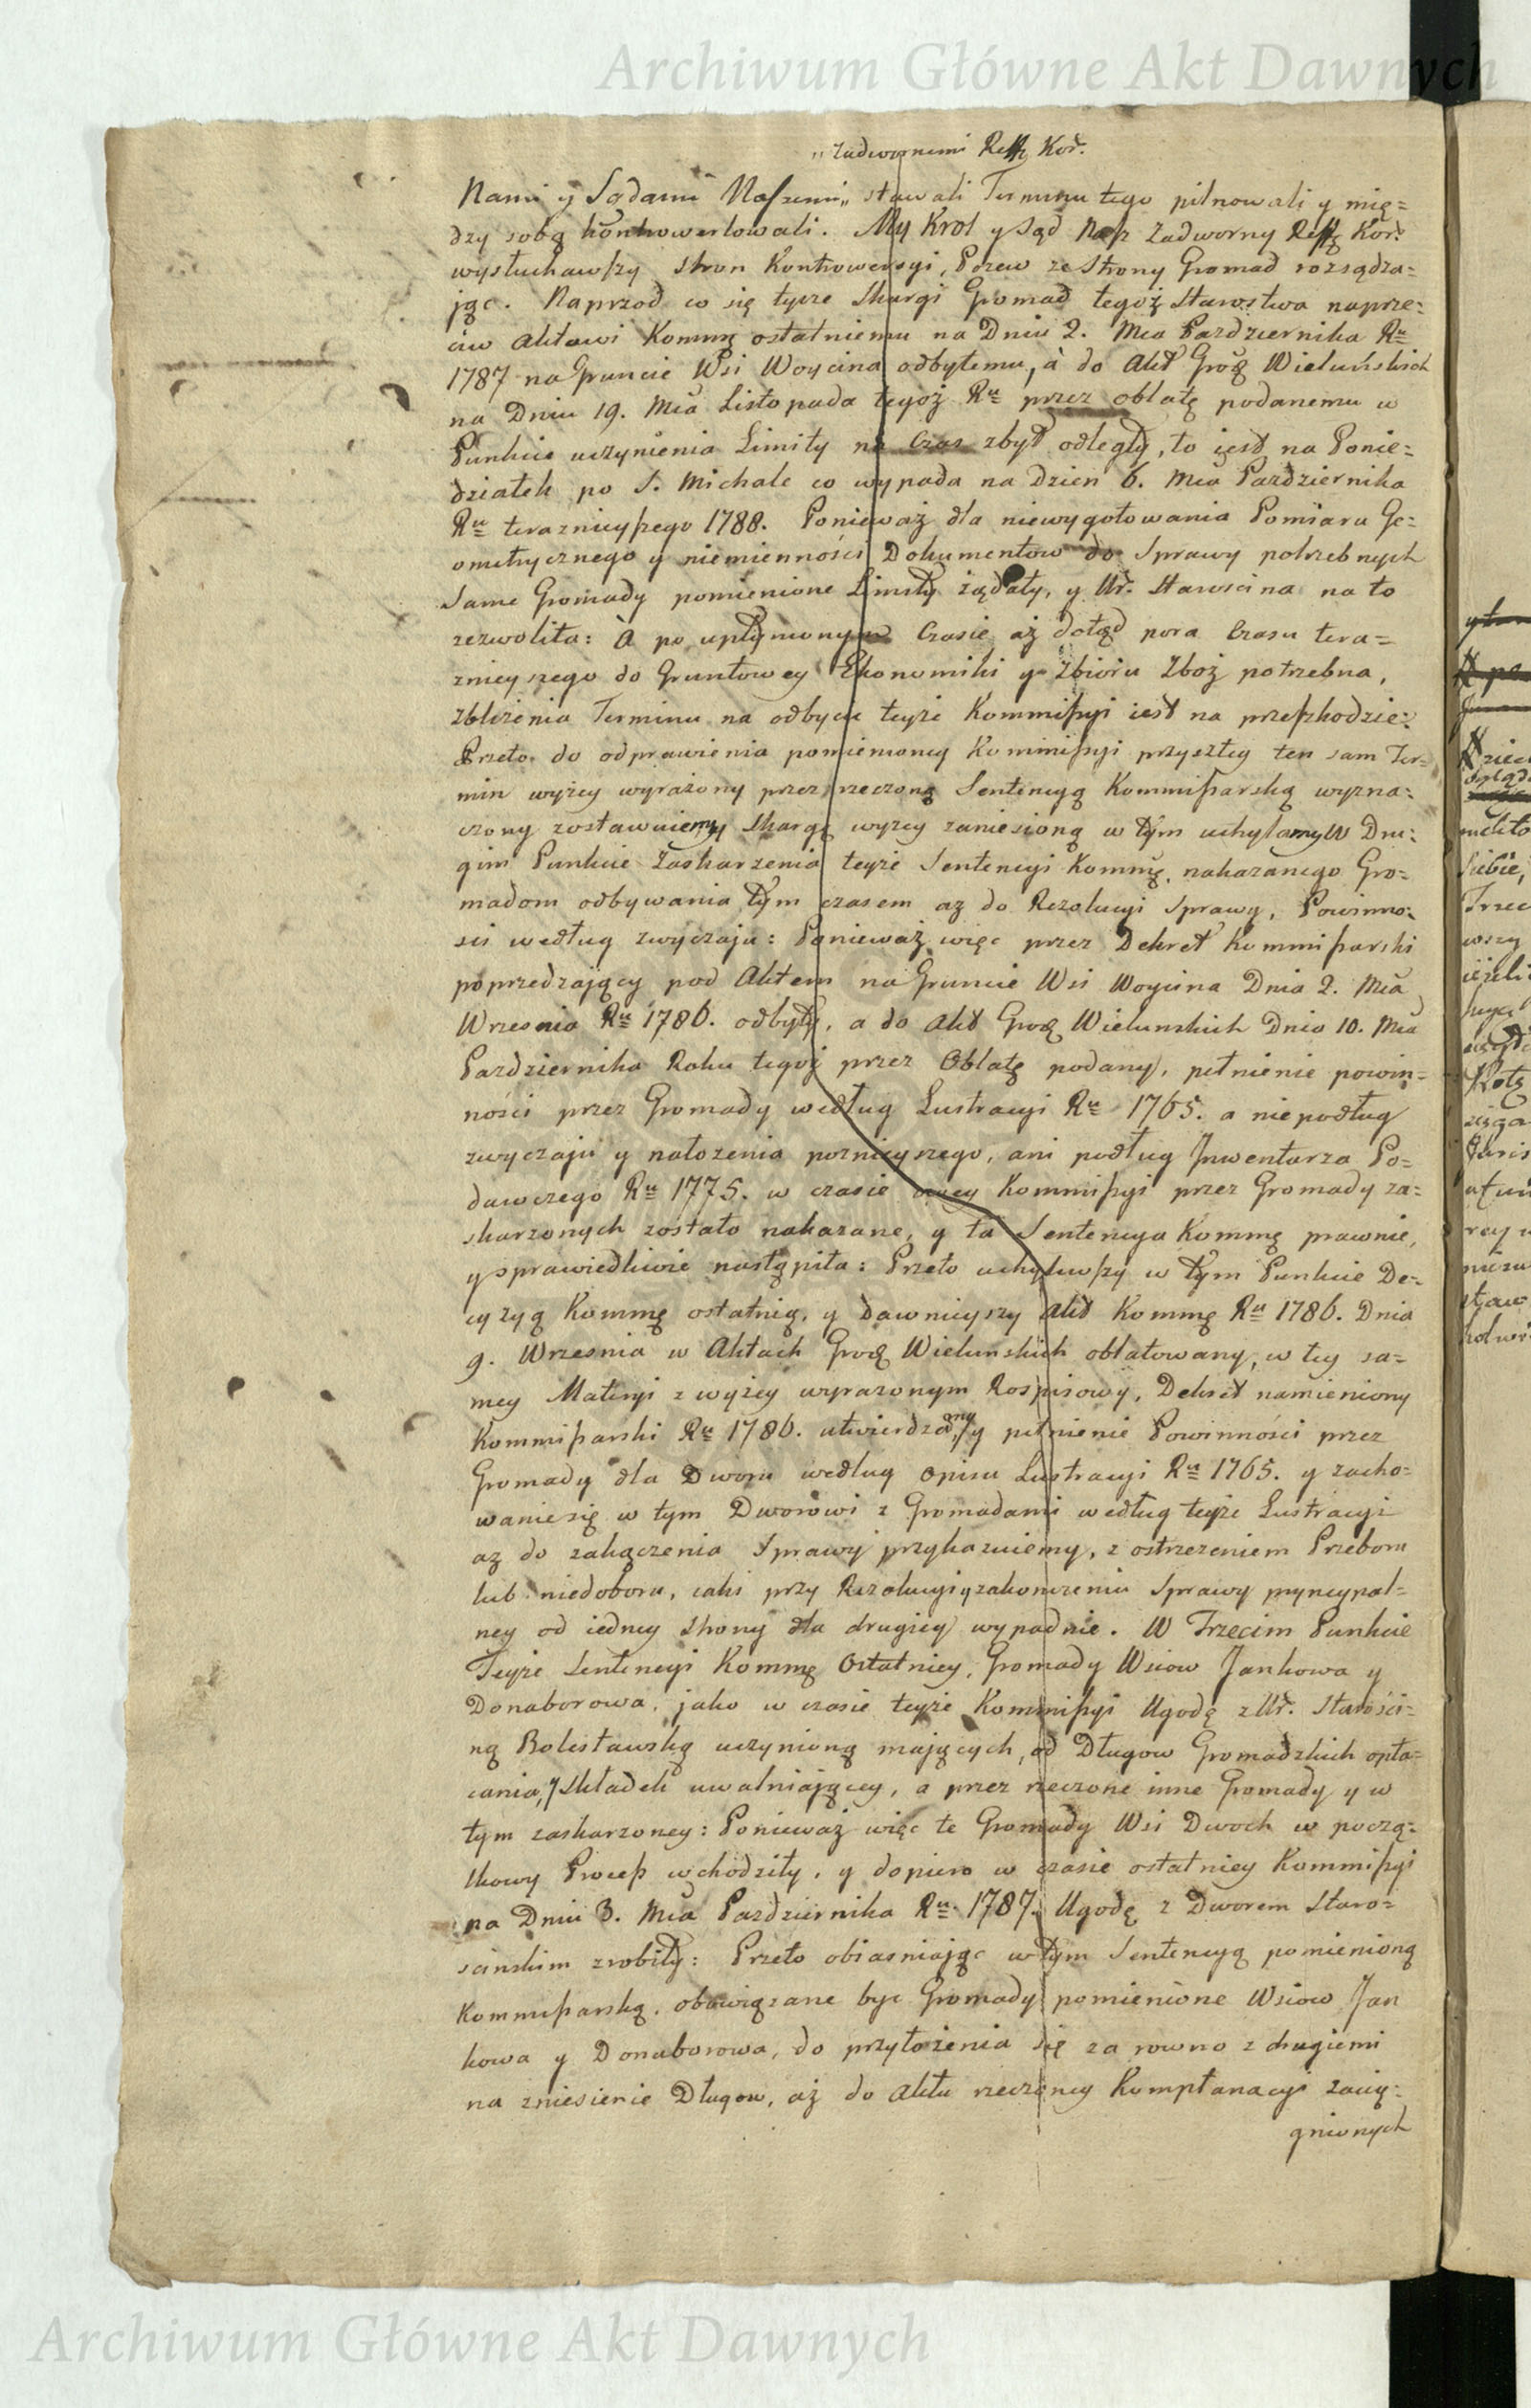 Archiwum Główne Akt Dawnych
„ Zadwornemi Reff Kor.
Nami y Sądami Naszemi „ stawali Terminu tego pilnowali y mię=
dzy sobą kontrowertowali. My Krol y Sąd Nasz Zadworny Reff Kor.
wysłuchawszy stron Kontrowersyi, Pozew ze Strony Gromad rozsądza=
jąc. Naprzod co się tycze Skargi Gromad tegoż Starostwa naprze=
ciw Aktowi Kommę ostatniemu na Dniu 2. Mca Pazdziernika Ru
1787 na Gruncie Wsi Woycina odbytemu, à do Akt Grox Wieluńskich
na Dniu 19. Mca Listopada tegoż Ru przez oblatę podanemu w
Punkcie uczynienia Limity na Czas zbyt odległy, to iest na Ponie=
działek po S. Michale co wypada na Dzien 6. Mca Pazdziernika
Ru teraznieyszego 1788. Ponieważ dla niewygotowania Pomiaru Ge=
ometrycznego y niemienności Dokumentow do Sprawy potrzebnych
same Gromady pomienione Limity żądały, y Ur. Starościna na to
zezwoliła: à po upłynionym Czasie aż dotąd pora Czasu tera=
znieyszego do Gruntowey Ekonomiki y Zbioru Zboż potrzebna,
zbliżenia Terminu na odbycie teyże Kommissyi iest na przeszkodzie:
Przeto do odprawienia pomienioney Kommissyi przyszłey ten sam Ter=
min wyżey wyrażony przez rzeczoną Sentencyą Kommissarską wyzna=
czony zostawuiemy Skargę wyżey zaniesioną w tym uchylamy W Dru=
gim Punkcie Zaskarzenia teyże Sentencyi Kommę. nakazanego Gro=
madom odbywania tym czasem az do Rezolucyi Sprawy, Powinno=
sci według zwyczaju: Ponieważ więc przez Dekret Kommissarski
poprzedzający pod Aktem na Gruncie Wsi Woycina Dnia 2. Mca
Wrzesnia Ru 1786. odbyty, a do Akt Grox Wielunskich Dnia 10. Mca
Pazdziernika Roku tegoż przez Oblatę podany, pełnienie powin=
ności przez Gromady według Lustracyi Ru 1765. a niepodług
zwyczaju y nałożenia poznieyszego, ani podług Jnwentarza Po=
dawczego Ru 1775. w czasie owey Kommissyi przez Gromady za=
skarzonych zostało nakazane, y ta Sentencya Kommę prawnie,
y sprawiedliwie nastąpiła: Przeto uchyliwszy w tym Punkcie De=
cyzyą Kommę ostatnią, y dawnieyszy Akt Kommę Ru 1786. Dnia
9. Wrzesnia w Aktach Grox Wielunskich oblatowany, w tey sa=
mey Materyi z wyżey wyrazonym Rospisowy, Dekret namieniony
Kommissarski Ru 1786. utwierdzamy, y pełnienie Powinności przez
Gromady dla Dworu według opisu Lustracyi Ru 1765. y zacho=
wanie się w tym Dworowi z Gromadami według teyże Lustracyi
aż do zakączenia Sprawy przykazuiemy, z ostrzezeniem Przeboru
lub niedoboru, iaki przy Rezolucyi y zakonczeniu Sprawy pryncypal=
ney od iedney strony dla drugiey wypadnie. W Trzecim Punkcie
Teyże Sentencyi Kommę Ostatniey, Gromady Wsiow Jankowa y
Donaborowa, jako w czasie teyże Kommissyi Ugodę z Ur. Starości=
ną Bolesławską uczynioną maiących, od Długow Gromadzkich opła=
cania, y składek uwalniaiącey, a przez rzeczone inne Gromady y w
tym zaskarzoney: Ponieważ więc te Gromady Wsi Dwoch w począ=
tkowy Process wchodziły, y dopiero w czasie ostatniey Kommissyi
na Dniu 3. Mca Pazdziernika Ru 1787. Ugodę z Dworem Staro=
scinskim zrobiły: Przeto obiasniaiąc w tym Sentencyą pomienioną
Kommissarską, obowiązane być Gromady pomienione Wsiow Jan
kowa y Donaborowa, do przyłożenia się za rowno z drugiemi
na zniesienie Długow, aż do Aktu rzeczoney Komplanacyi zacią=
gnionych
Archiwum Główne Akt Dawnych